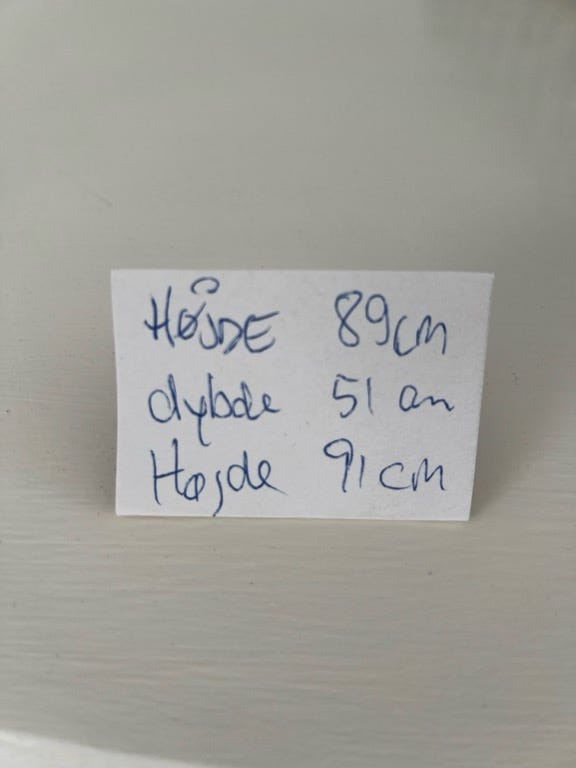 HØJDE 89cm
dybde 51 cm
Højde 91 cm